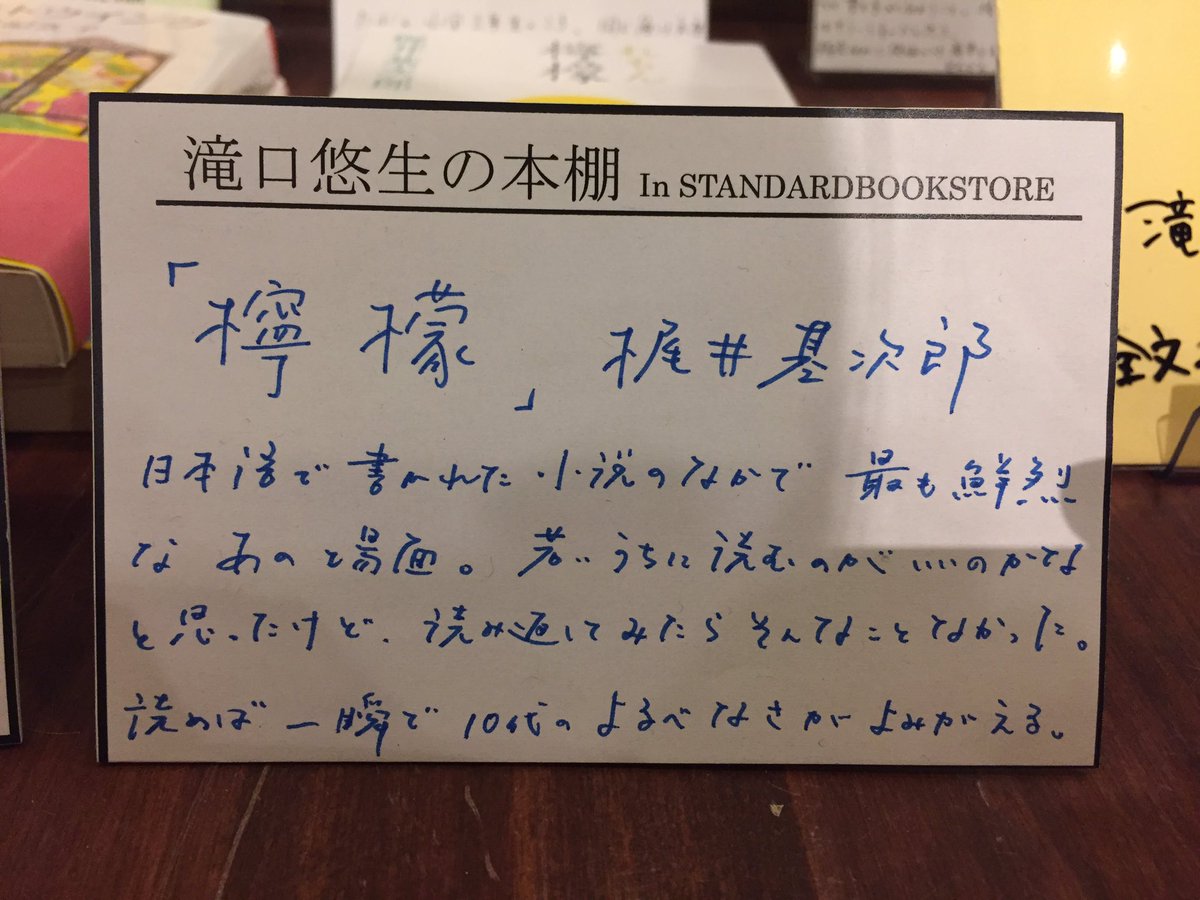 滝口悠生の本棚 In STANDARDBOOKSTORE
「檸檬」梶井基次郎
日本語で書かれた小説のなかで 最も鮮烈
な あの場面。若いうちに読むのがいいのかな
と思ったけど、読み返してみたらそんなことなかった。
読めば一瞬で10代のよるべなさがよみがえる。
滝
全文